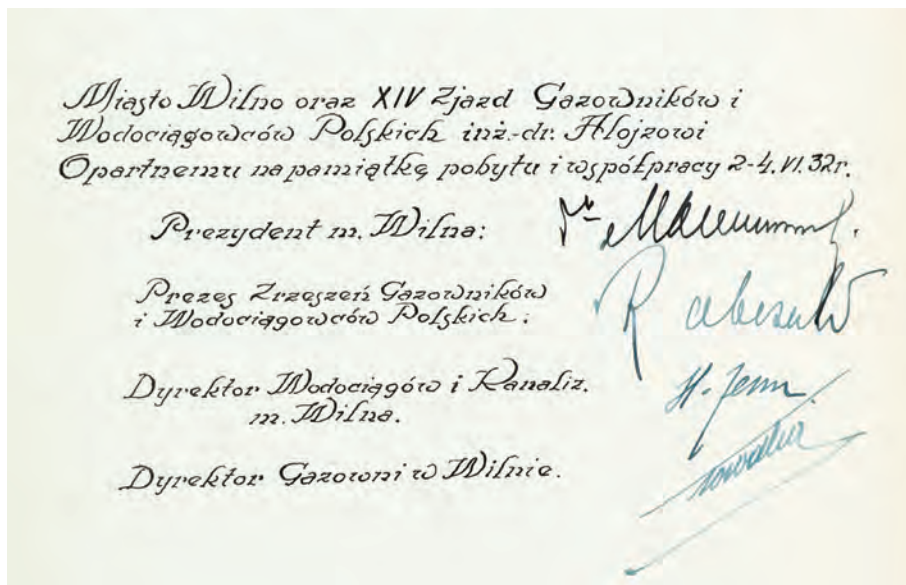 Miasto Wilno oraz XIV Zjazd Gazowników i
Wodociągowców Polskich inż.-dr. Alojzowi
Opartnemu na pamiątkę pobytu i współpracy 2-4. VI. 32r.
Prezydent m. Wilna:
Prezes Zrzeszeń Gazowników
i Wodociągowców Polskich:
Dyrektor Wodociągów i Kanaliz.
m. Wilna.
Dyrektor Gazowni w Wilnie.